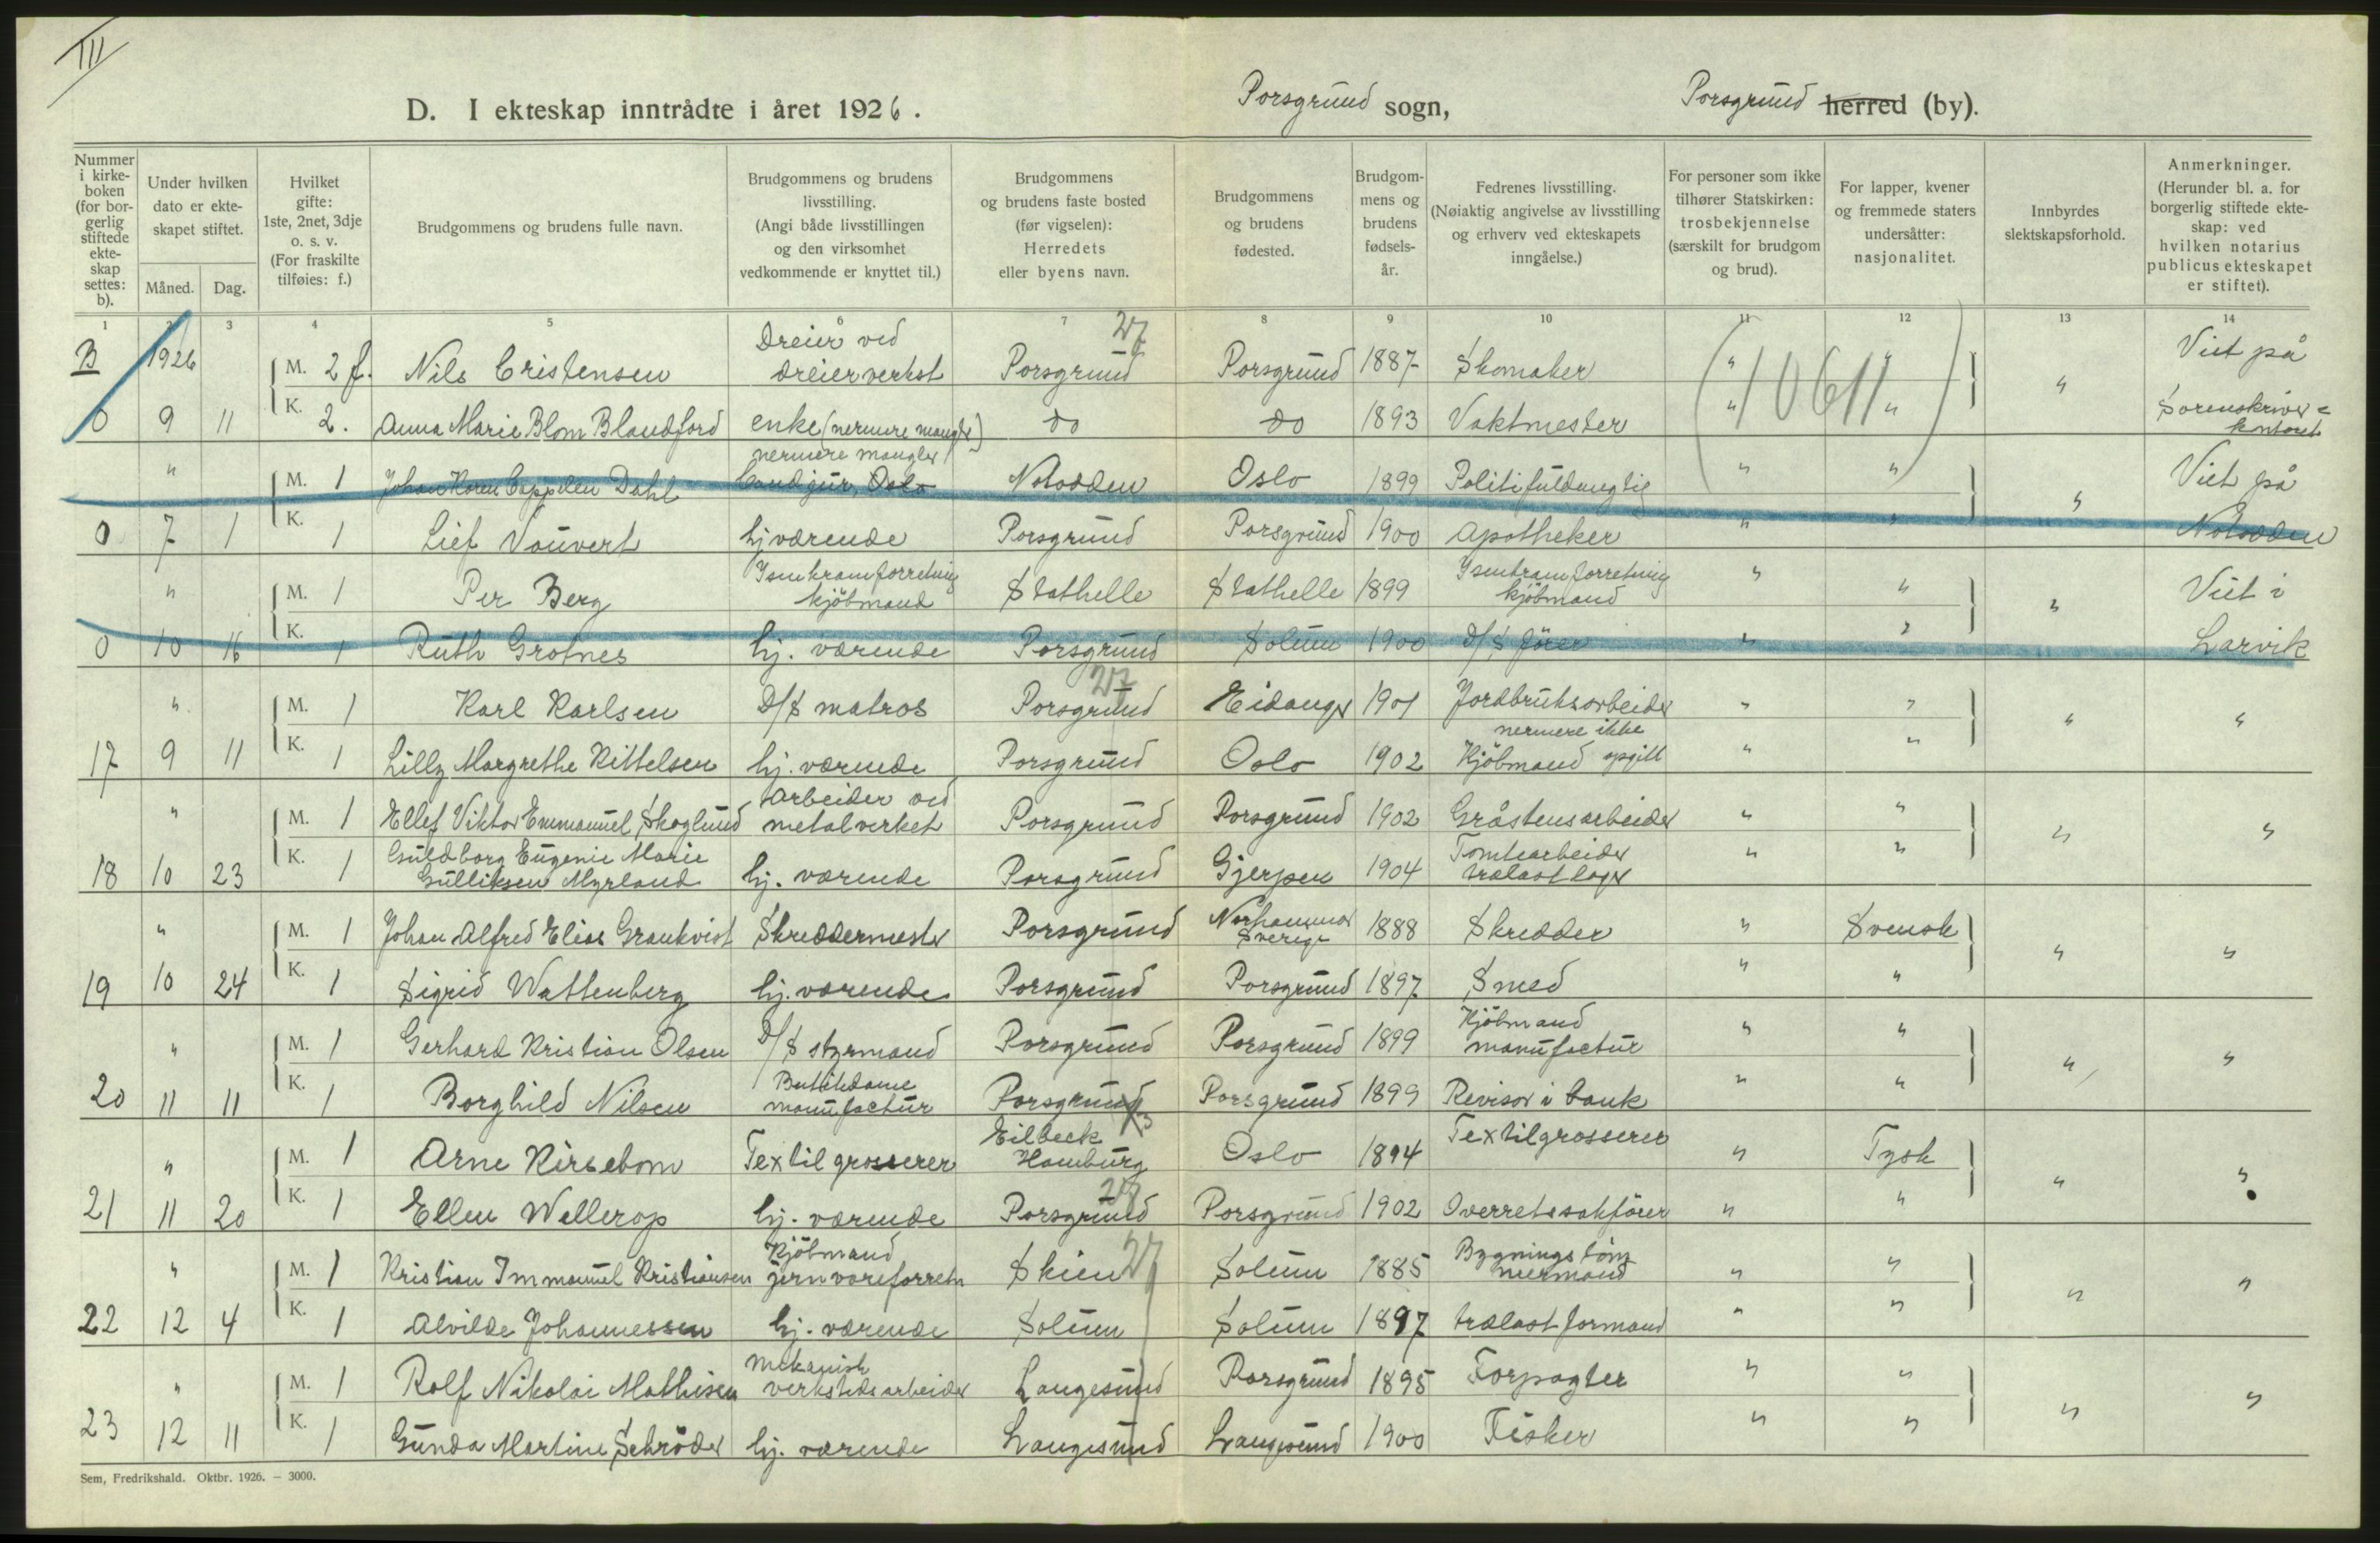 III
D. I ekteskap inntrådte i året 1926.
Porsgrund sogn, Porsgrund herred (by).
Nummer i kirke-boken (for bor-gerlig stiftede ekte-skap settes: b).
Under hvilken dato er ekte-skapet stiftet.
Måned. Dag.
Hvilket gifte: 1ste, 2net, 3dje o. s. v. (For fraskilte tilføies: f.)
Brudgommens og brudens fulle navn.
Brudgommens og brudens livsstilling. (Angi både livsstillingen og den virksomhet vedkommende er knyttet til.)
Brudgommens og brudens faste bosted (før vigselen): Herredets eller byens navn.
Brudgommens og brudens fødested.
Brudgom-mens og brudens fødsels-år.
Fedrenes livsstilling. (Nøiaktig angivelse av livsstilling og erhverv ved ekteskapets inngåelse.)
For personer som ikke tilhører Statskirken: trosbekjennelse (særskilt for brudgom og brud).
For lapper, kvener og fremmede staters undersåtter: nasjonalitet.
Innbyrdes slektskapsforhold.
Anmerkninger. (Herunder bl. a. for borgerlig stiftede ekte-skap: ved hvilken notarius publicus ekteskapet er stiftet).
1 2 3 4 5 6 7 8 9 10 11 12 13 14
B 1926 M. 2 f. Nils Cristensen Dreier ved dreierverkst Porsgrund 27 Porsgrund 1887 Skomaker " " " Viet på
0 9 11 K. 2. Anna Marie Blom Blandford enke (nermere mangler) do do 1893 Vaktmester " " Sorenskriver= kontoret
(10611)
" M. 1 Johan Koren Cappelen Dahl nermere mangler Cand jur, Oslo Notodden Oslo 1899 Politifuldmegtig " " " Viet på
0 7 1 K. 1 Lief Vauvert hj værende Porsgrund Porsgrund 1900 Apotheker " " Notodden
" M. 1 Per Berg Isenkramforretning kjöbmand Stathelle Stathelle 1899 Isenkramforretning kjöbmand " " " Viet i
0 10 16 K. 1 Ruth Grotnes hj. værende Porsgrund Solum 1900 D/S förer " " Larvik
" M. 1 Karl Karlsen D/S matros Porsgrund 27 Eidanger 1901 Jordbruksarbeider " " " "
17 9 11 K. 1 Lilly Margrethe Kittelsen hj. værende Porsgrund Oslo 1902 Kjöbmand nermere ikke opgitt " "
" M. 1 Ellef Viktor Emmanuel Skoglund Arbeider ved metalverket Porsgrund Porsgrund 1902 Gråstensarbeider " " " "
18 10 23 K. 1 Guldborg Eugenie Marie Gulliksen Myrland hj. værende Porsgrund Gjerpen 1904 Tomtearbeider trælastlager " "
" M. 1 Johan Alfred Elias Grankvist Skreddermester Porsgrund Norhammar Sverige 1888 Skredder " Svensk " "
19 10 24 K. 1 Sigrid Wattenberg hj. værende Porsgrund Porsgrund 1897 Smed " "
" M. 1 Gerhard Kristian Olsen D/S styrmand Porsgrund Porsgrund 1899 Kjöbmand manufactur " " " "
20 11 11 K. 1 Borghild Nilsen Butikdame manufactur Porsgrund Porsgrund 1899 Revisor i bank " "
" M. 1 Arne Kirsebom Textilgrosserer Eilbeck Hamburg Oslo 1894 Textilgrosserer " Tysk " "
21 11 20 K. 1 Ellen Wellerop hj. værende Porsgrund 27 Porsgrund 1902 Overretssakförer " "
" M. 1 Kristian Immanuel Kristiansen Kjöbmand jernvareforretn Skien 27 Solum 1885 Bygningstöm mermand " " " "
22 12 4 K. 1 Alvilde Johannessen hj. værende Solum Solum 1897 trælast formand " "
" M. 1 Rolf Nikolai Mathisen mekanisk verkstedsarbeider Langesund Porsgrund 1895 Forpagter " " " "
23 12 11 K. 1 Gunda Martine Schröder hj. værende Langesund Langesund 1900 Fisker " "
Sem, Fredrikshald. Oktbr. 1926. — 3000.